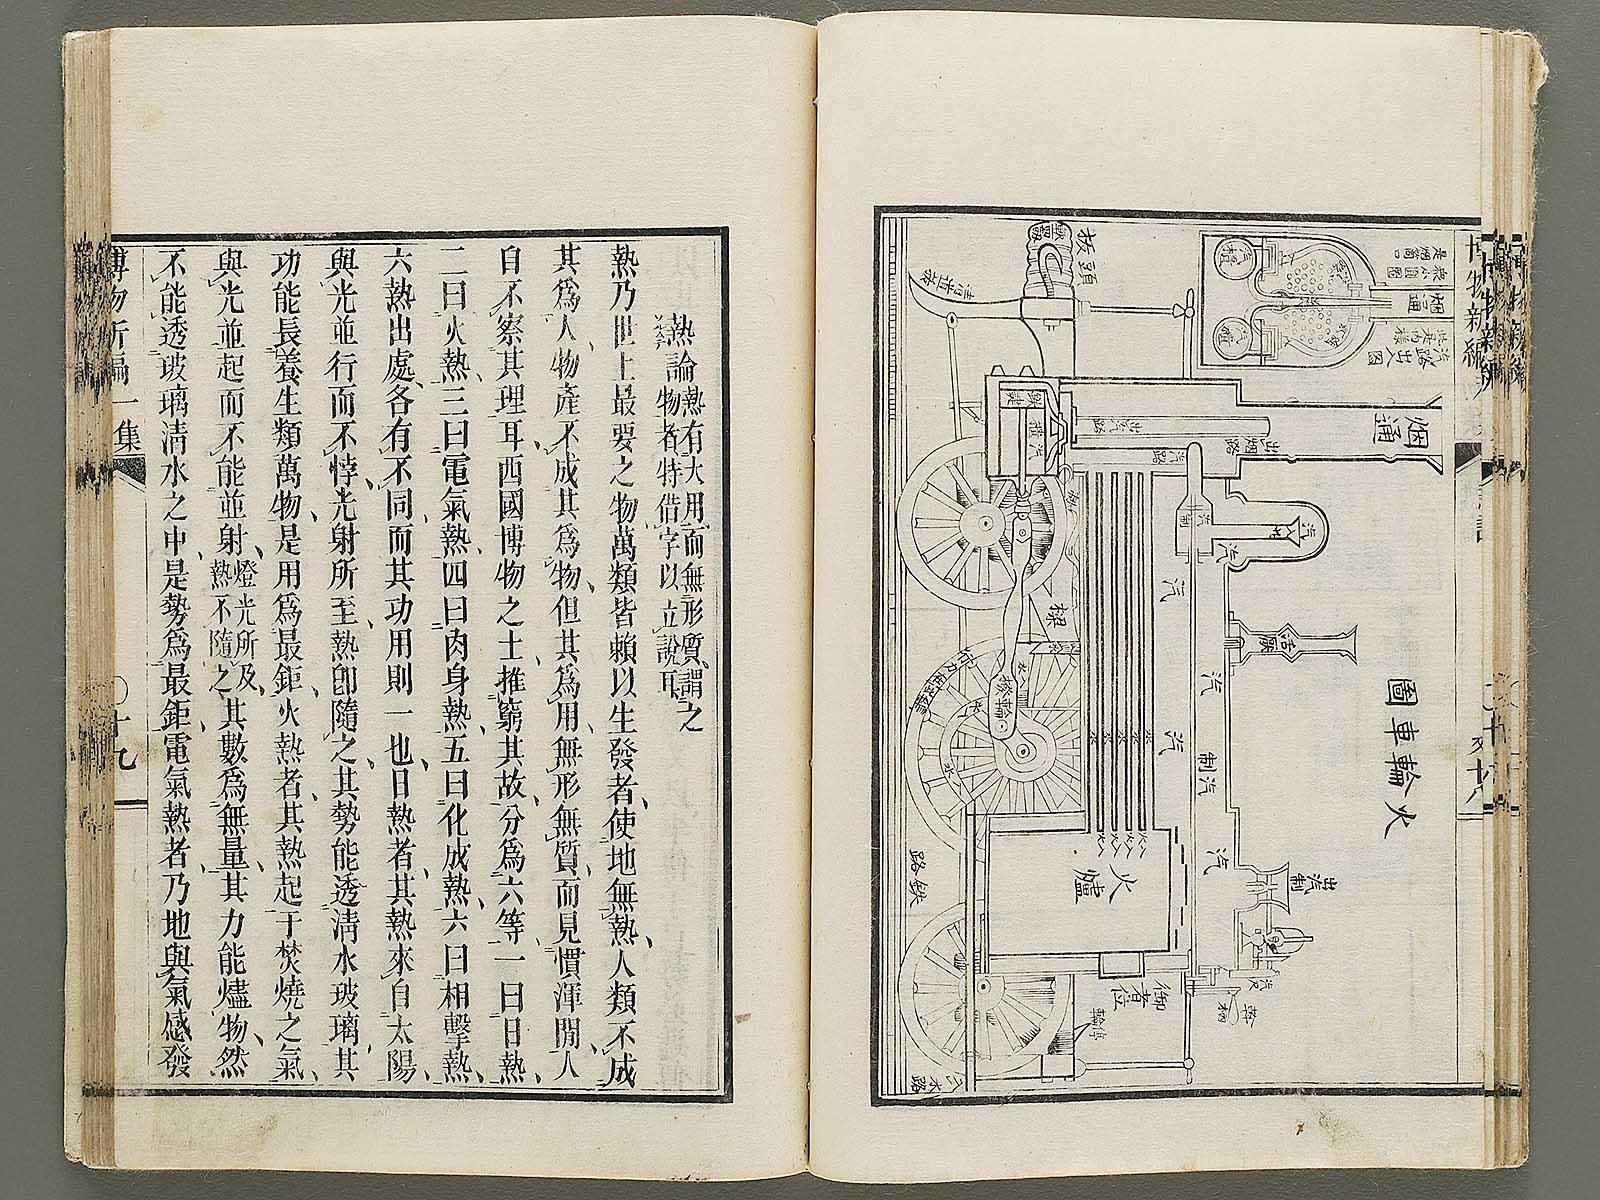 火輪車圖
烟通
汽
汽
汽
汽
制汽
火爐
御者位
鉄路
出汽制
汽尺
響闗
出烟路
出汽路
汽路
汽制
接頭
清道板
入水路
烟通
衆小圓圈
是烟窗口
熱論
熱有大用而無形質謂之
物者特借字以立說耳
熱乃世上最要之物萬類皆賴以生發者使地無熱人類不成
其爲人物產不成其爲物但其爲用無形無質而見慣渾閒人
自不察其理耳西國博物之士推窮其故分爲六等一曰日熱
二曰火熱三曰電氣熱四曰肉身熱五曰化成熱六曰相擊熱
六熱出處各有不同而其功用則一也日熱者其熱來自太陽
與光並行而不悖光射所至熱卽隨之其勢能透清水玻璃其
功能長養生類萬物是用爲最鉅火熱者其熱起于焚燒之氣
與光並起而不能並射
燈光所及
熱不隨之
其數爲無量其力能燼物然
不能透玻璃清水之中是勢爲最鉅電氣熱者乃地與氣感發
博物新編一集
十九